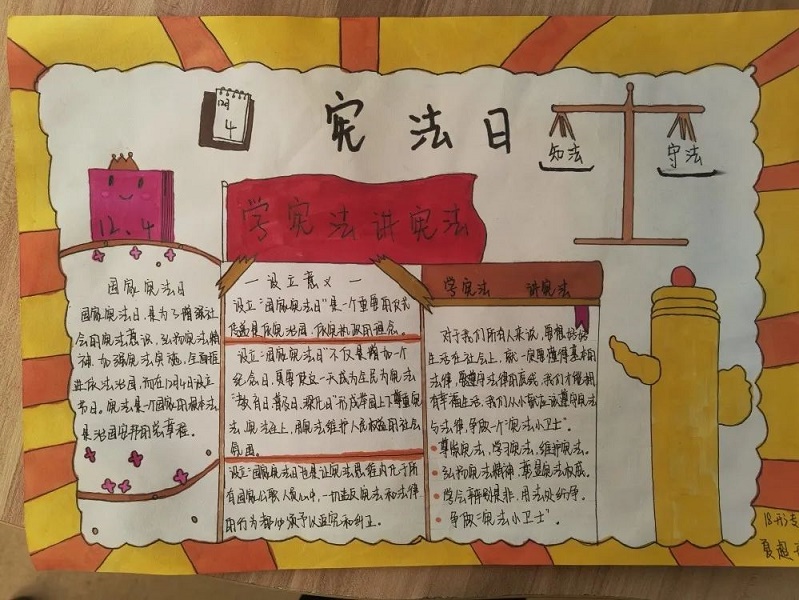 12月
4
宪法日
知法
守法
12.4
学宪法讲宪法
国家宪法日
国家宪法日,是为了增强社
会宪法意识,弘扬宪法精
神,加强宪法实施,全面推
进依法治国,而在12月4日设立
节日。宪法是一个国家的根本法
是治国安邦的总章程。
一设立意义一
设立"国家宪法日"是一个重要的仪式
传递是依宪治国、依宪执政的理念。
设立"国家宪法日"不仅是增加一个
纪念日,更要使这一天成为全民的宪法
"教育日、普及日、深化日"形成举国上下尊重宪
法、宪法至上、用宪法维护人民权益的社会
氛围。
设立"国家宪法日"也是让宪法思维内化于所
有国家公职人员心中,一切违反宪法和法律
的行为都必须予以追究和纠正。
学宪法 讲宪法
对于我们所有人来说,要想好好
生活在社会上,就一定要懂得基本的
法律,要遵守法律的底线,我们才能拥
有幸福生活,我们从小就应该遵守宪法
与法律,争做一个"宪法小卫士"。
尊敬宪法,学习宪法,维护宪法。
弘扬宪法精神,彰显宪法权威。
学会辨别是非,用法处纷争。
争做"宪法小卫士"。